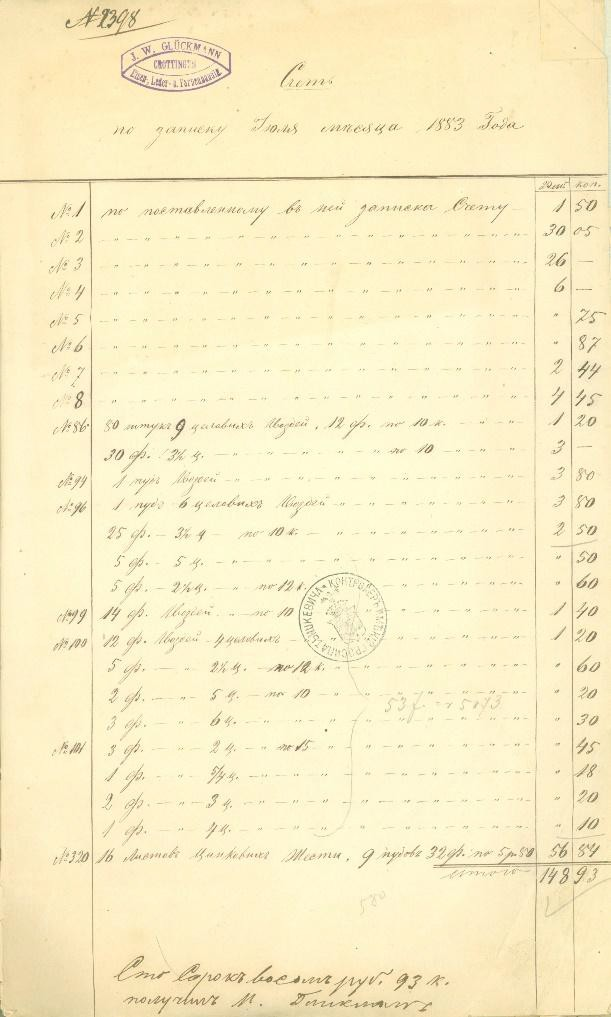 № 2398
J. W. GLÜCKMANN
CROTTINGEN
Eisen-, Leder- u. Farbenhandlg.
Счетъ
по записку Іюля мѣсяца 1883 Года
руб. коп.
№ 1 по поставленному въ ней записка Счету 1 50
№ 2 30 05
№ 3 26 —
№ 4 6 —
№ 5 " 75
№ 6 " 87
№ 7 2 44
№ 8 4 45
№ 86 80 штукъ 9 цоловихъ Гвоздей, 12 ф. по 10 к. 1 20
30 ф. 3½ ц. по 10 3 —
№ 94 1 пудъ Гвоздей 3 80
№ 96 1 пудъ 6 цоловихъ Гвоздей 3 80
25 ф. — 3½ ц — по 10 к. 2 50
5 ф. 5 ц. " 50
5 ф. — 2½ ц. — по 12 к. " 60
№ 99 14 ф. Гвоздей по 10 1 40
№ 100 12 ф. Гвоздей 4 цоловихъ 1 20
5 ф. — " 2½ ц. — по 12 к. " 60
2 ф. — " 5 ц. — по 10 " 20
3 ф. — " 6 ц. " 30
№ 101 3 ф. — " 2 ц. — по 15 " 45
1 ф. — " 5/4 ц. " 18
2 ф. — " 3 ц. " 20
1 ф. — " 4 ц. " 10
№ 320 16 Листовъ Цинковихъ Жести, 9 пудовъ 32 ф. по 5 р 80 56 84
итого 148 93
КОНТРОЛЕРЪ ИМѢНІЙ ГР. ІОСИФА ТЫШКЕВИЧА
580
Сто Сорокъ восемъ руб. 93 к.
получилъ М. Гликманъ